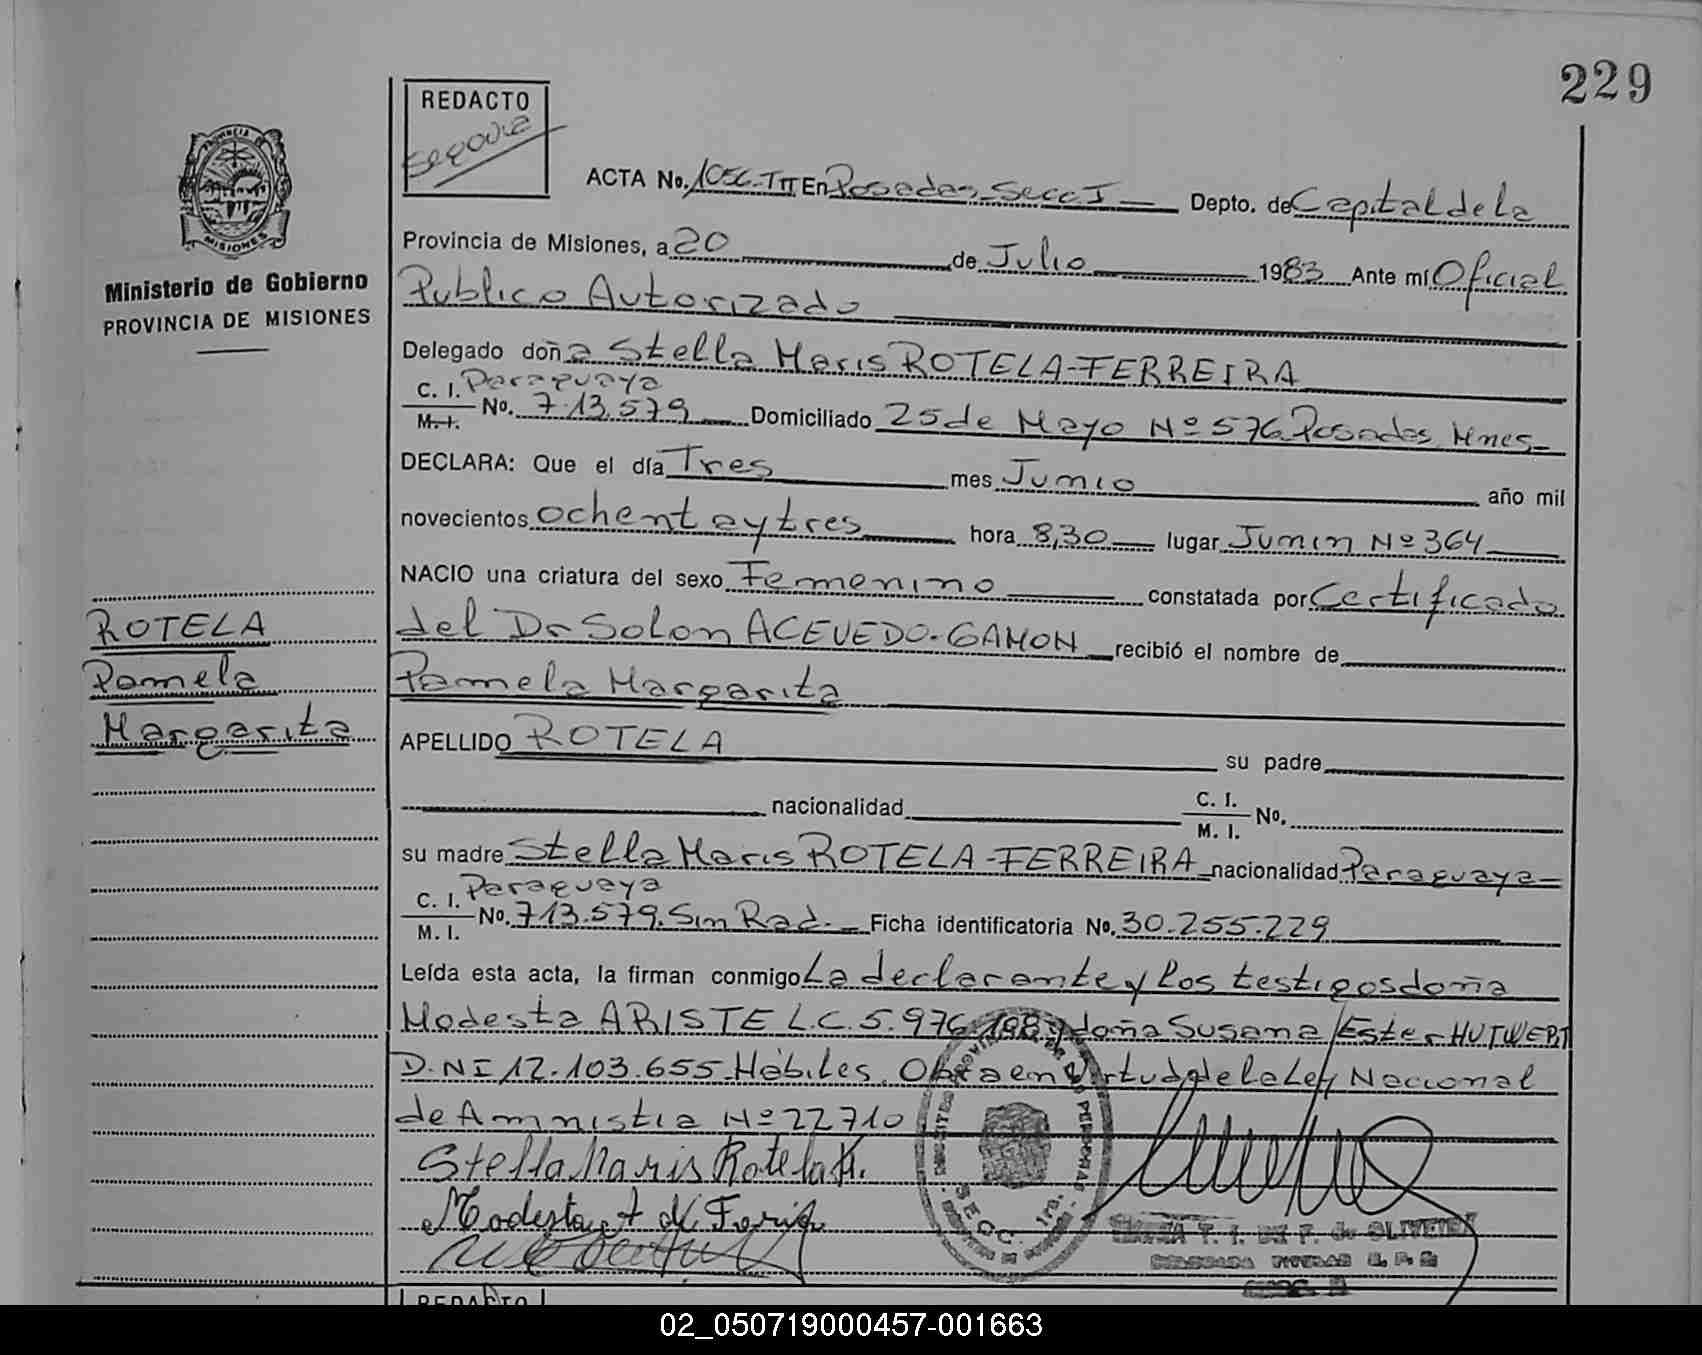 229
REDACTO
Segovia
ACTA No. 1056-TII En Posadas-Secc I Depto. de Capital de la
Provincia de Misiones, a 20 de Julio 1983 Ante mí Oficial
Publico Autorizado
Delegado doña Stella Maris ROTELA-FERREIRA
C. I. Paraguaya
M. I. No. 713.579 Domiciliado 25 de Mayo Nº 576 Posadas, Mnes-
DECLARA: Que el día Tres mes Junio año mil
novecientos ochenta y tres hora 8,30 lugar Junin Nº 364
NACIO una criatura del sexo Femenino constatada por Certificado
del Dr Solon ACEVEDO-GAMON recibió el nombre de
Pamela Margarita
APELLIDO ROTELA su padre
nacionalidad C. I. M. I. No.
su madre Stella Maris ROTELA-FERREIRA nacionalidad Paraguaya
C. I. Paraguaya
M. I. No. 713.579. Sin Rad. Ficha identificatoria No. 30.255.229
Leída esta acta, la firman conmigo La declarante y los testigos doña
Modesta ARISTE L.C. 5.976.198 y doña Susana Ester HUTWERT
D.NI 12.103.655 Hábiles. Obra en Virtud de la Ley Nacional
de Amnistia Nº 22710
Stella Maris Rotela F.
Modesta A de
SECC. 1ra.
Ministerio de Gobierno
PROVINCIA DE MISIONES
PROVINCIA DE
MISIONES
ROTELA
Pamela
Margarita
REDACTO
02_050719000457-001663